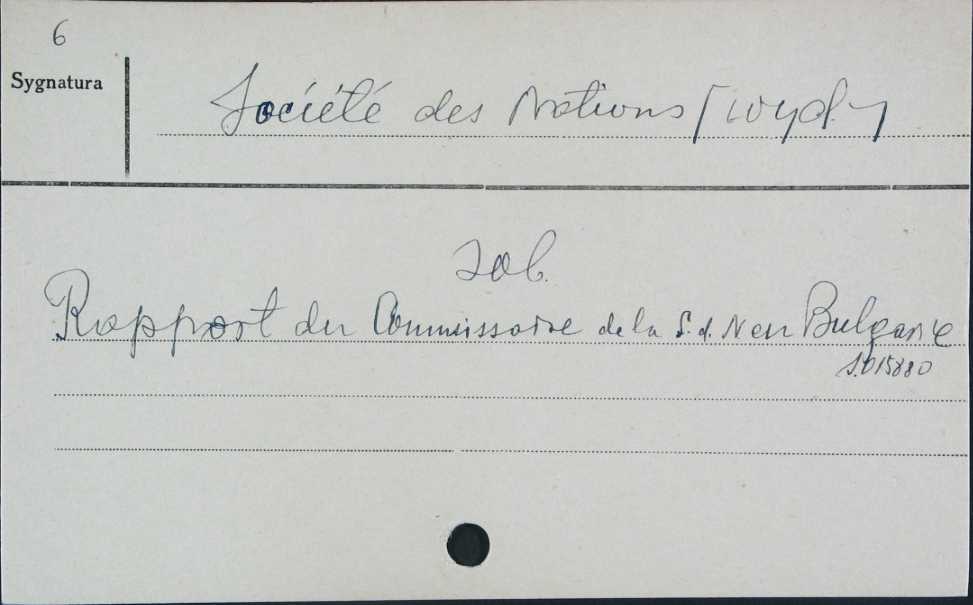 6
Sygnatura
Société des Nations [wyd.]
zob.
Rapport du Commissaire de la S. d. N en Bulgarie